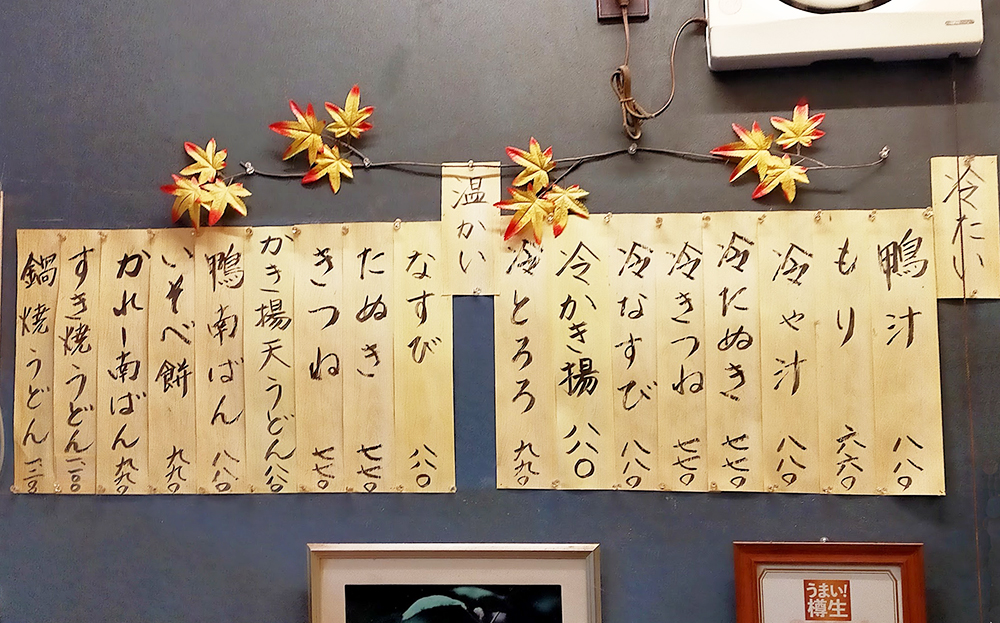 冷たい
鴨汁 八八〇
もり 六六〇
冷や汁 八八〇
冷たぬき 七七〇
冷きつね 七七〇
冷なすび 八八〇
冷かき揚 八八〇
冷とろろ 九九〇
温かい
なすび 八八〇
たぬき 七七〇
きつね 七七〇
かき揚天うどん 八八〇
鴨南ばん 八八〇
いそべ餅 九九〇
かれー南ばん 九九〇
すき焼うどん 一一〇〇
鍋焼うどん
うまい!
樽生